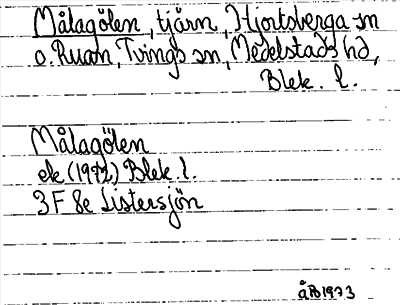 Målagölen, tjärn, Hjortsberga sn
o. Ruan, Tvings sn, Medelstads hd,
Blek. l.
Målagölen
ek (1972) Blek. l.
3F 8e Listersjön
åB 1973